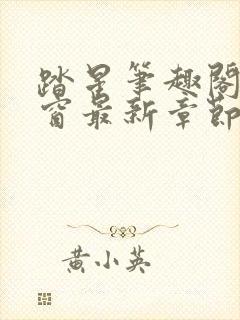 踏星笔趣阁
窗最新章節
黄小英